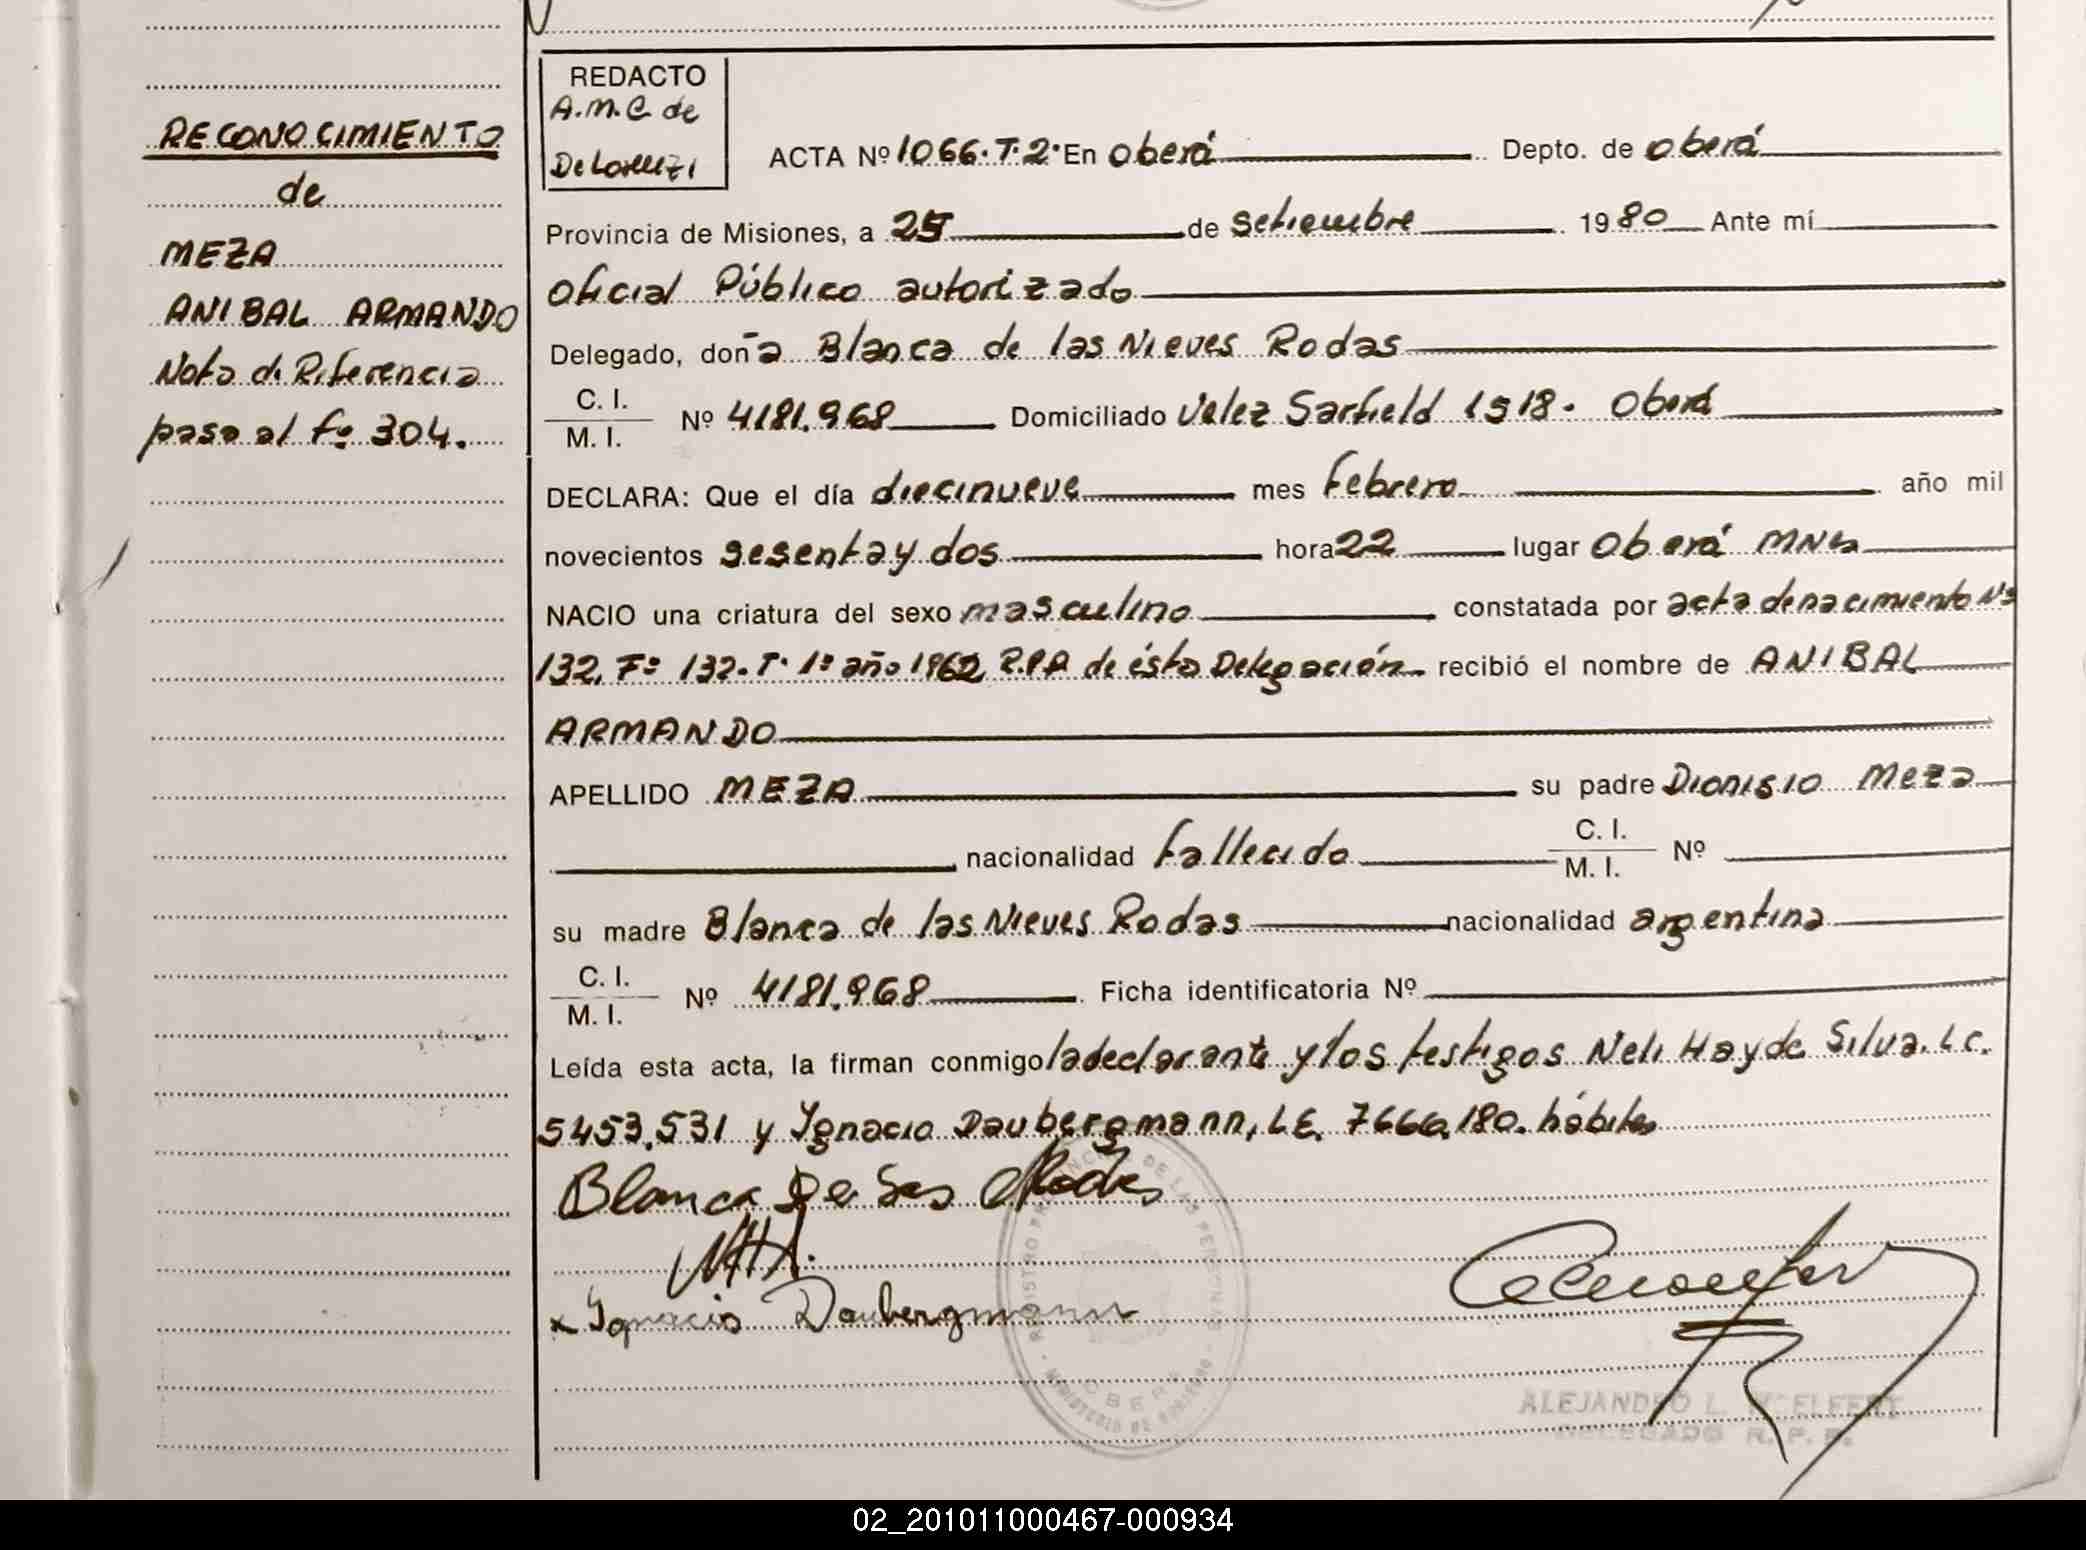 RECONOCIMIENTO
de
MEZA
ANIBAL ARMANDO
Nota de Referencia
pasa al fº 304.
REDACTO
A.M.C de
De Lorenzi
ACTA Nº 1066.T.2. En Oberá Depto. de Oberá
Provincia de Misiones, a 25 de Setiembre 1980 Ante mí
Oficial Público autorizado
Delegado, doña Blanca de las Nieves Rodas
C. I.
M. I. Nº 4181.968 Domiciliado Velez Sarfield 1518. Oberá
DECLARA: Que el día diecinueve mes Febrero año mil
novecientos sesenta y dos hora 22 lugar Oberá MNes
NACIO una criatura del sexo masculino constatada por acta de nacimiento Nº
132. Fº 132. T. 1º año 1962 R.P.P de ésta Delegación recibió el nombre de ANIBAL
ARMANDO
APELLIDO MEZA su padre Dionisio Meza
nacionalidad fallecido C. I.
M. I. Nº
su madre Blanca de las Nieves Rodas nacionalidad argentina
C. I.
M. I. Nº 4181.968 Ficha identificatoria Nº
Leída esta acta, la firman conmigo la declarante y los testigos Neli Hayde Silva. L.C.
5453.531 y Ignacio Daubergmann, L.E. 7666.180. hábiles
Blanca De las Rodas
NHS.
x Ignacio Daubergmann
REGISTRO PROVINCIAL DE LAS PERSONAS
OBERA
MINISTERIO DE GOBIERNO
ALEJANDRO L. WOELFERT
DELEGADO R. P. P.
02_201011000467-000934